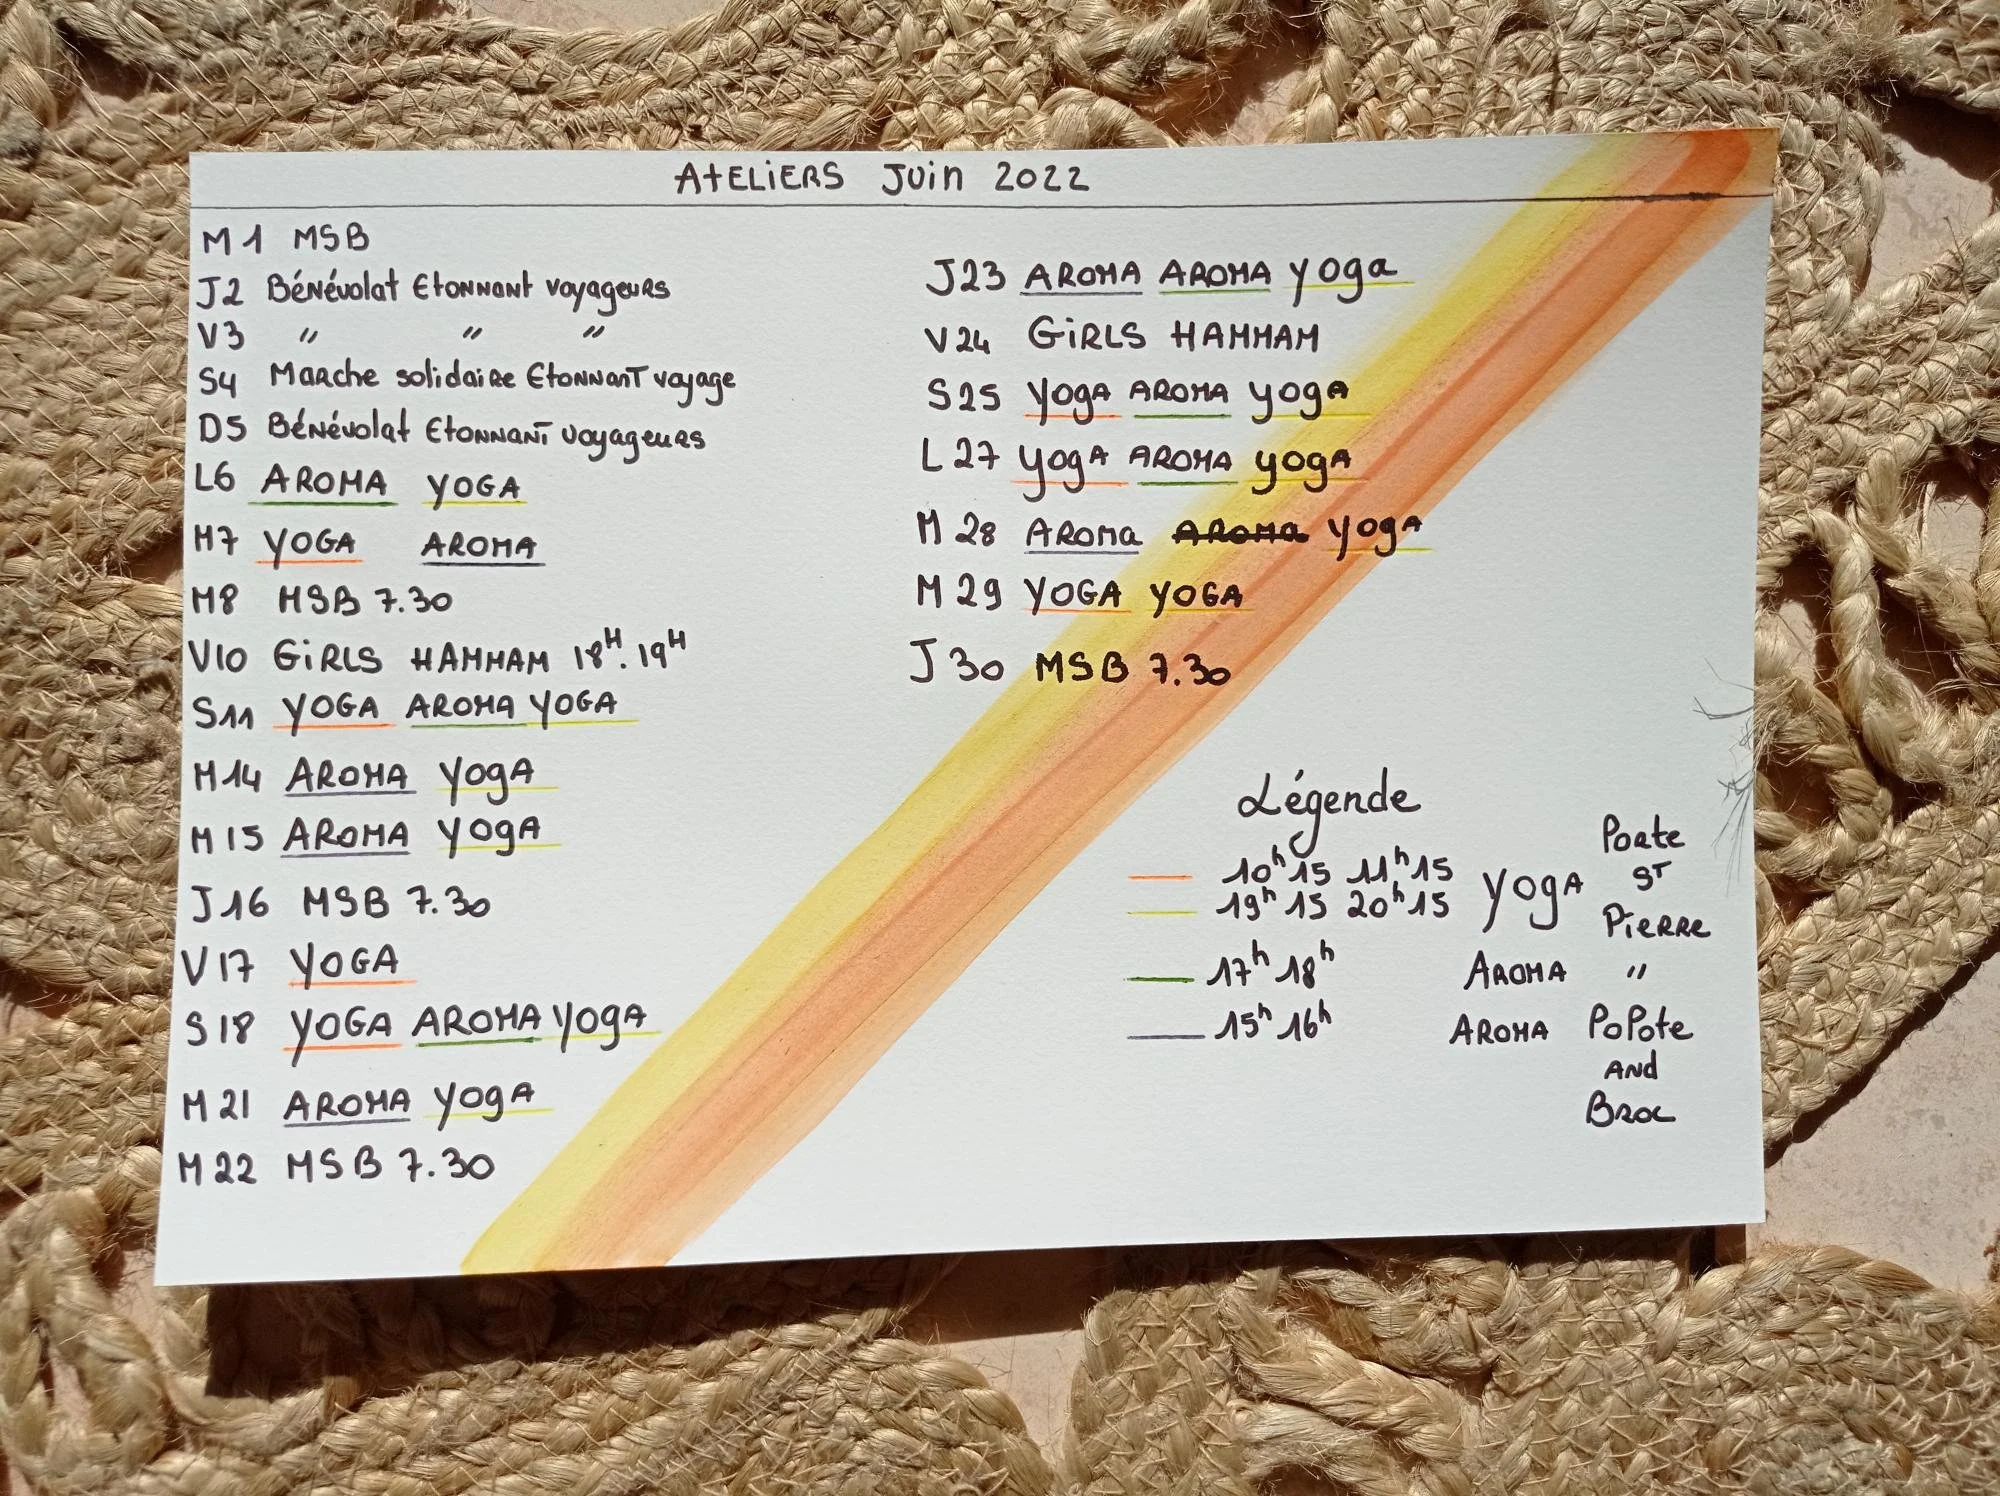 ATELIERS Juin 2022
M1 MSB
J2 Bénévolat Etonnant voyageurs
V3 " " "
S4 Marche solidaire Etonnant voyage
D5 Bénévolat Etonnant voyageurs
L6 AROMA YOGA
M7 YOGA AROMA
M8 MSB 7.30
V10 GiRLS HAMMAM 18H. 19H
S11 YOGA AROMA YOGA
M14 AROMA YogA
M15 AROMA YogA
J16 MSB 7.30
V17 YOGA
S18 YOGA AROMA YogA
M21 AROMA YogA
M22 MSB 7.30
J23 AROMA AROMA Yoga
V24 GiRLS HAMMAM
S25 YogA AROMA YogA
L27 YogA AROMA YogA
M28 AROMa AROMa YogA
M29 YOGA YOGA
J30 MSB 7.30
Légende
10h15 11h15
19h15 20h15 YogA Porte ST PiERRE
17h 18h AROMA "
15h 16h AROMA PoPote
AND
BROC